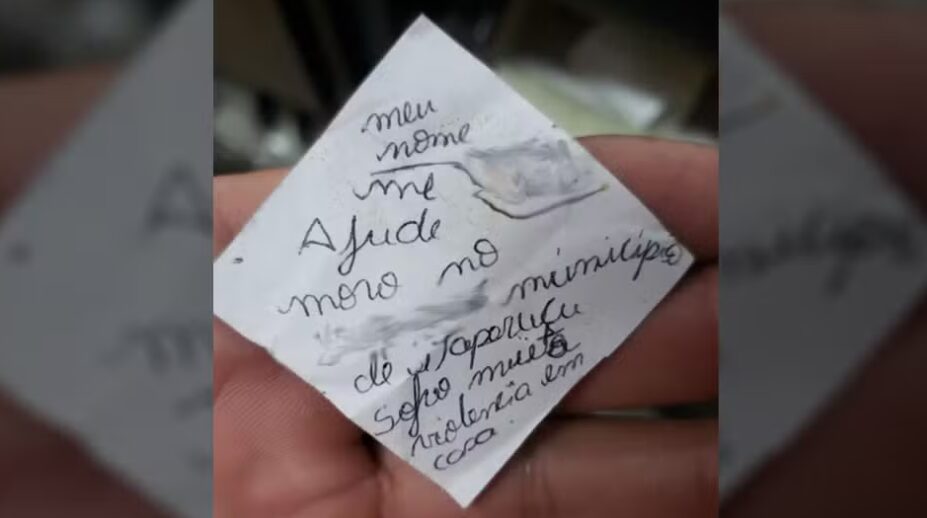 meu
nome
me
Ajude
moro no
municipio
de Itaperuçu
Sofro muita
violencia em
casa.